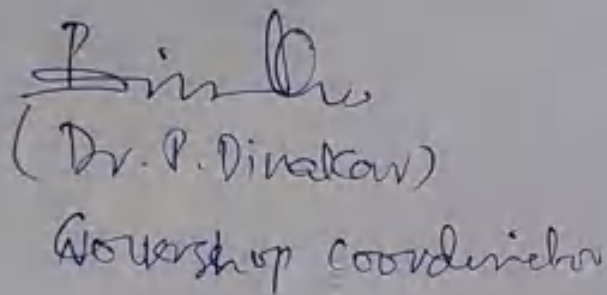 (Dr. P. Dinakar)
Workshop coordinator